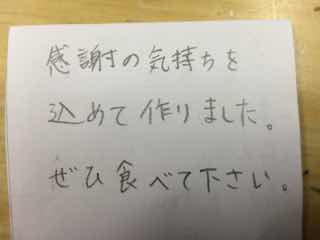 感謝の気持ちを
込めて作りました。
ぜひ食べて下さい。